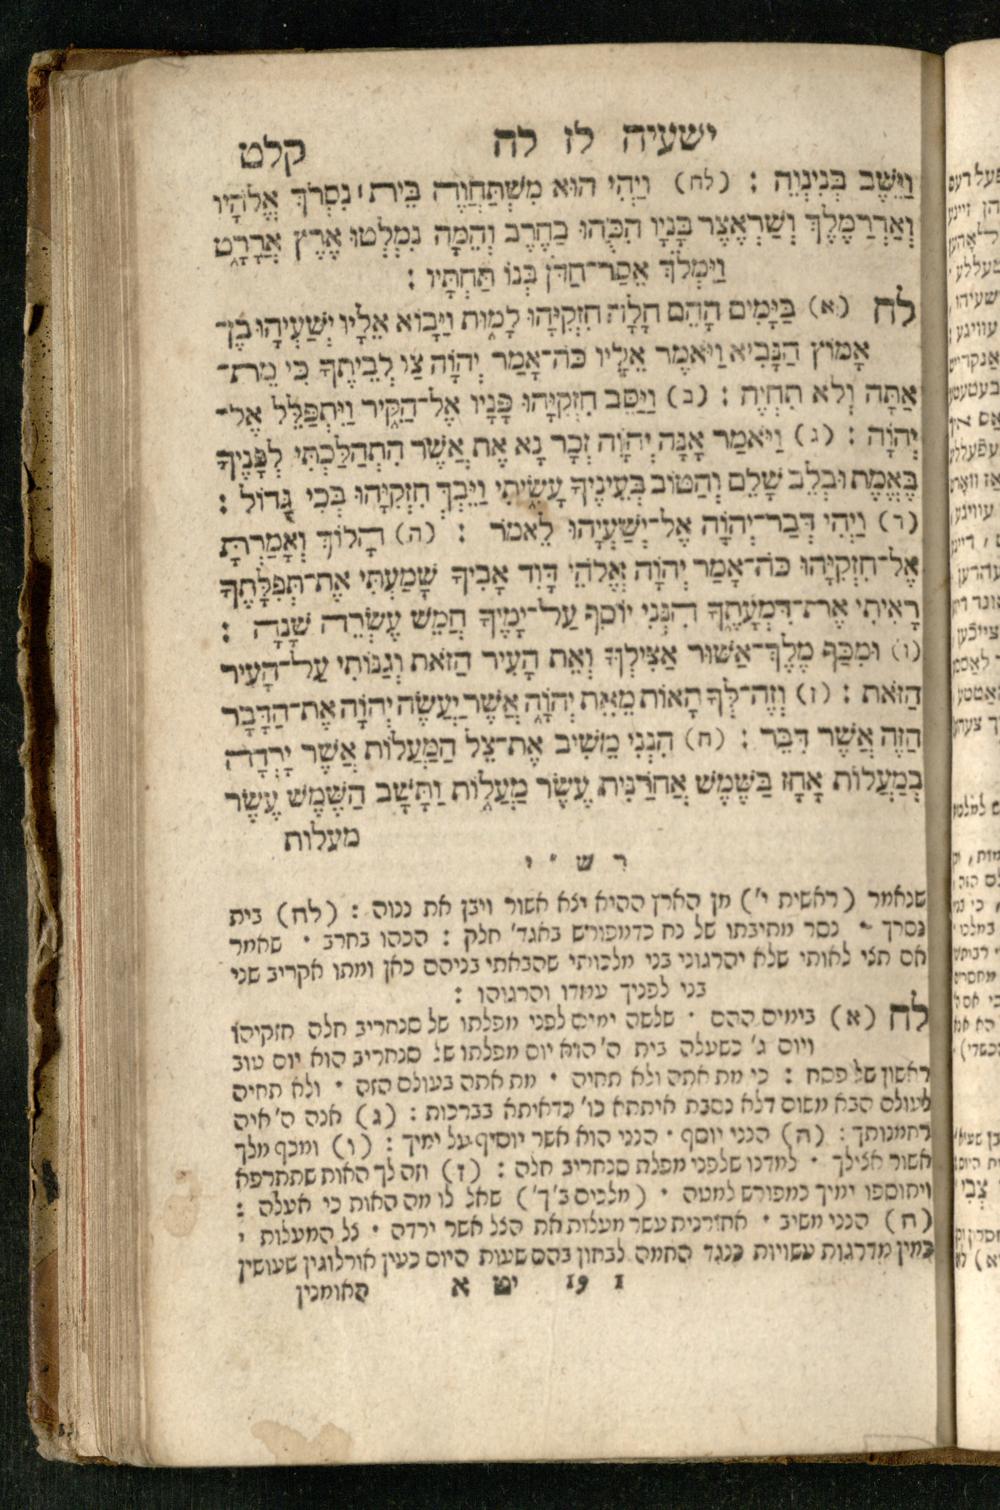 ישעיה לז לח
קלט
וַיֵּשֶׁב בְּנִינְוֵה : (לח) וַיְהִי הוּא מִשְׁתַּחֲוֶה בֵּית ׀ נִסְרֹךְ אֱלֹהָיו
וְאַדְרַמֶּלֶךְ וְשַׂרְאֶצֶר בָּנָיו הִכֻּהוּ בַחֶרֶב וְהֵמָּה נִמְלְטוּ אֶרֶץ אֲרָרָט
וַיִּמְלֹךְ אֵסַר־חַדֹּן בְּנוֹ תַּחְתָּיו :
לח (א) בַּיָּמִים הָהֵם חָלָה חִזְקִיָּהוּ לָמוּת וַיָּבוֹא אֵלָיו יְשַׁעְיָהוּ בֶן־
אָמוֹץ הַנָּבִיא וַיֹּאמֶר אֵלָיו כֹּה־אָמַר יְהוָֹה צַו לְבֵיתֶךָ כִּי מֵת־
אַתָּה וְלֹא תִחְיֶה : (ב) וַיַּסֵּב חִזְקִיָּהוּ פָּנָיו אֶל־הַקִּיר וַיִּתְפַּלֵּל אֶל־
יְהוָֹה : (ג) וַיֹּאמַר אָנָּה יְהוָֹה זְכָר נָא אֵת אֲשֶׁר הִתְהַלַּכְתִּי לְפָנֶיךָ
בֶּאֱמֶת וּבְלֵב שָׁלֵם וְהַטּוֹב בְּעֵינֶיךָ עָשִׂיתִי וַיֵּבְךְּ חִזְקִיָּהוּ בְּכִי גָדוֹל :
(ד) וַיְהִי דְּבַר־יְהוָֹה אֶל־יְשַׁעְיָהוּ לֵאמֹר : (ה) הָלוֹךְ וְאָמַרְתָּ
אֶל־חִזְקִיָּהוּ כֹּה־אָמַר יְהוָֹה אֱלֹהֵי דָּוִד אָבִיךָ שָׁמַעְתִּי אֶת־תְּפִלָּתֶךָ
רָאִיתִי אֶת־דִּמְעָתֶךָ הִנְנִי יוֹסִף עַל־יָמֶיךָ חֲמֵשׁ עֶשְׂרֵה שָׁנָה :
(ו) וּמִכַּף מֶלֶךְ־אַשּׁוּר אַצִּילְךָ וְאֵת הָעִיר הַזֹּאת וְגַנּוֹתִי עַל־הָעִיר
הַזֹּאת : (ז) וְזֶה־לְּךָ הָאוֹת מֵאֵת יְהוָֹה אֲשֶׁר יַעֲשֶׂה יְהוָֹה אֶת־הַדָּבָר
הַזֶּה אֲשֶׁר דִּבֵּר : (ח) הִנְנִי מֵשִׁיב אֶת־צֵל הַמַּעֲלוֹת אֲשֶׁר יָרְדָה
בְמַעֲלוֹת אָחָז בַּשֶּׁמֶשׁ אֲחֹרַנִּית עֶשֶׂר מַעֲלוֹת וַתָּשָׁב הַשֶּׁמֶשׁ עֶשֶׂר
מעלות
ר ש " י
שנאמר (ראשית י') מן הארץ ההיא יצא אשור ויבן את ננוה : (לח) בית
נסרך · נסר מתיבתו של נח כדמפורש באגד' חלק : הכהו בחרב · שאמר
אם תצי לאותי שלא יהרגוני בני מלכותי שהבאתי בניהם כאן ומתו אקריב שני
בני לפניך עמדו והרגוהו :
לח (א) בימים ההם · שלשה ימים לפני מפלתו של סנחריב חלה חזקיהו
ויום ג' כשעלה בית ה' הוא יום מפלתו של סנחריב הוא יום טוב
ראשון של פסח : כי מת אתה ולא תחיה · מת אתה בעולם הזה · ולא תחיה
לעולם הבא משום דלא נסבת איתתא כו' כדאיתא בברכות : (ג) אנה ה' איה
רחמנותך : (ה) הנני יוסף · הנני הוא אשר יוסיף על ימיך : (ו) ומכף מלך
אשור אצילך · למדנו שלפני מפלת סנחריב חלה : (ז) וזה לך האות שתתרפא
ויתוספו ימיך כמפורש למטה · (מלכים ב' ך') שאל לו מה האות כי אעלה :
(ח) הנני משיב · אחורנית עשר מעלות את הצל אשר ירדה · צל המעלות ׳
כמין מדרגות עשויות כנגד החמה לבחון בהם שעות היום כעין אורלוגין שעושין
1 19 יט א האומנין